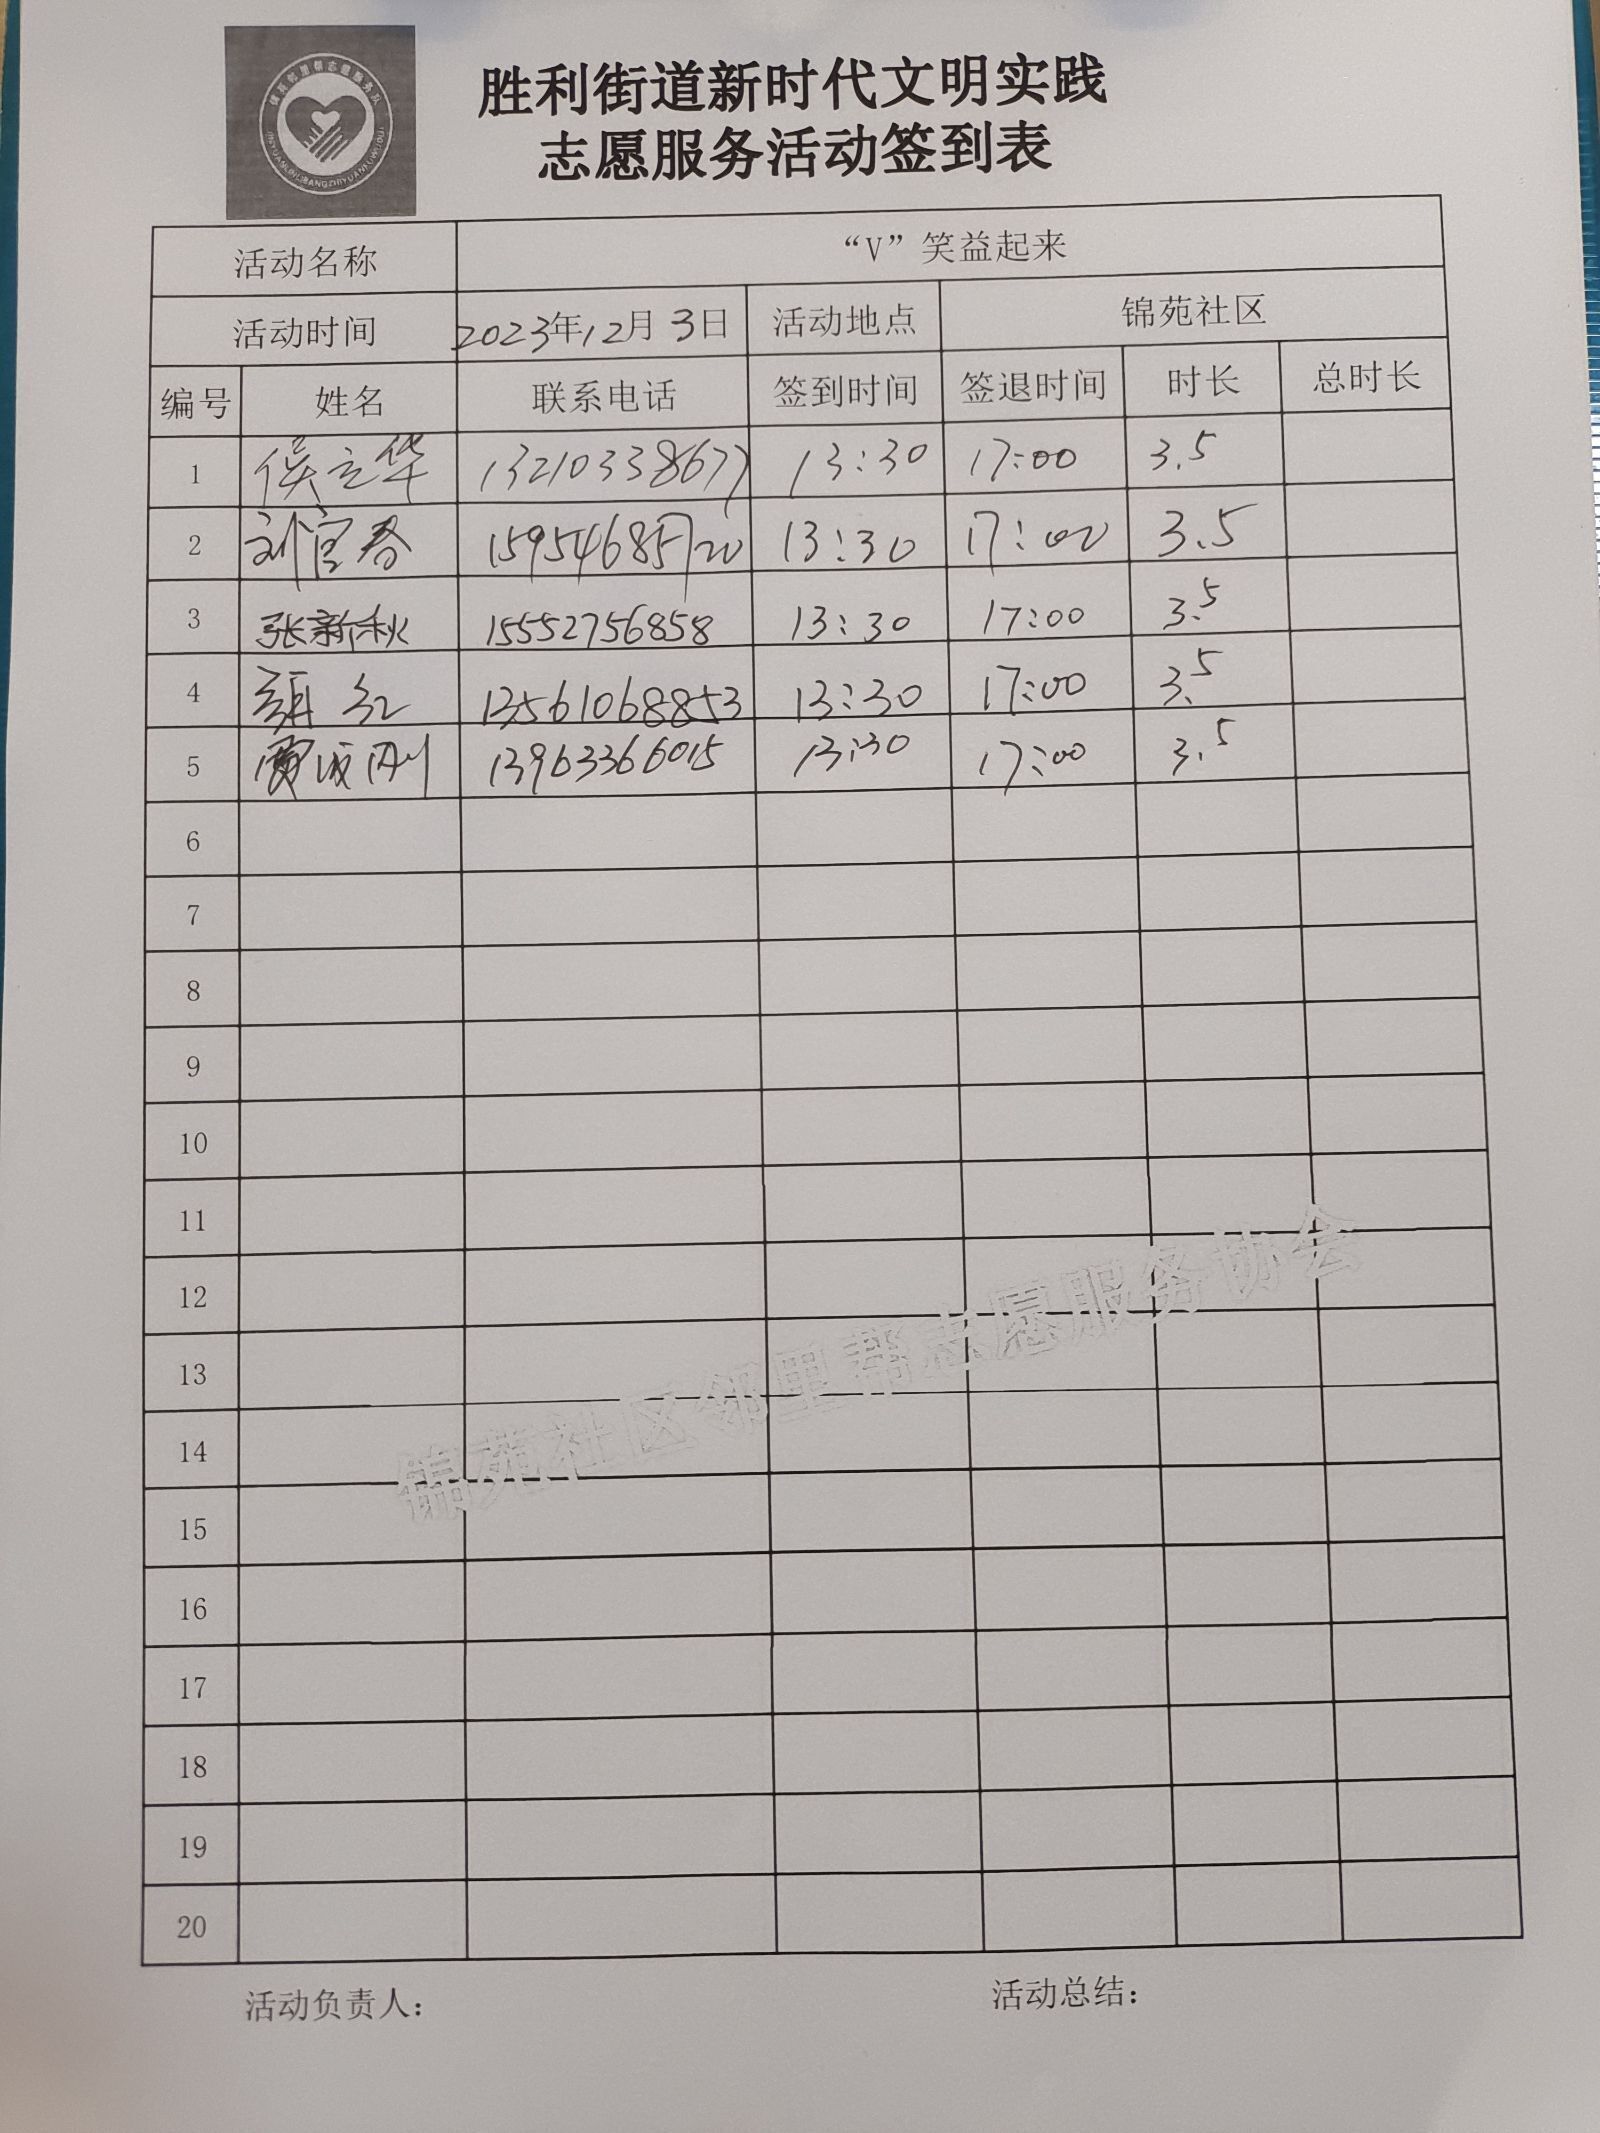 锦苑邻里帮志愿服务队
胜利街道新时代文明实践
志愿服务活动签到表
活动名称 “V”笑益起来
活动时间 2023年12月3日 活动地点 锦苑社区
编号 姓名 联系电话 签到时间 签退时间 时长 总时长
1 侯立华 13210338677 13:30 17:00 3.5
2 刘宜春 15954685720 13:30 17:00 3.5
3 张新秋 15552756858 13:30 17:00 3.5
4 红 13561068853 13:30 17:00 3.5
5 13963366015 13:30 17:00 3.5
6
7
8
9
10
11
12
13
14
15
16
17
18
19
20
锦苑社区邻里帮志愿服务协会
活动负责人： 活动总结：